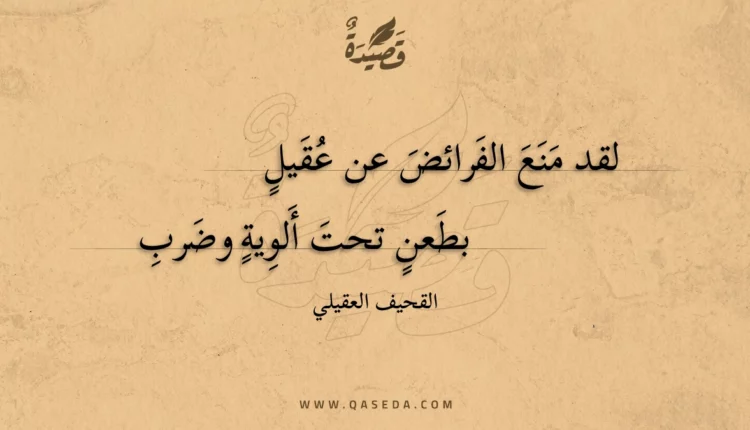 قَصِيدَةٌ
لقد مَنَعَ الفَرائضَ عن عُقَيلٍ
بطَعنٍ تحتَ أَلوِيةٍ وضَربِ
القحيف العقيلي
WWW.QASEDA.COM